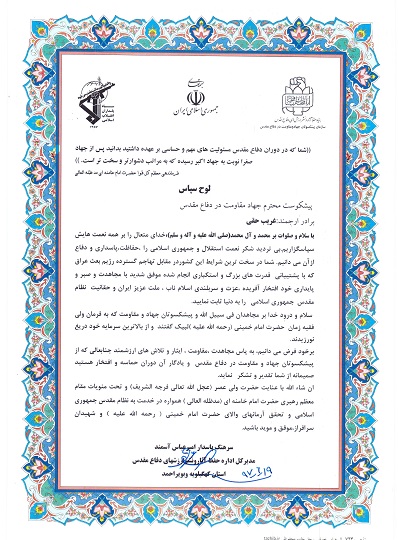 جمهوری اسلامی ایران
((شما که در دوران دفاع مقدس مسئولیت های مهم و حساسی بر عهده داشتید بدانید پس از جهاد
صغرا نوبت به جهاد اکبر رسیده که به مراتب دشوارتر و سخت تر است. ))
فرماندهی معظم کل قوا حضرت امام خامنه ای مدظله العالی
لوح سپاس
پیشکوست محترم جهاد مقاومت در دفاع مقدس
برادر ارجمند: غریب حقی
با سلام و صلوات بر محمد و آل محمد(صلی الله علیه و آله و سلم)،خدای متعال را بر همه نعمت هایش
سپاسگزاریم،بی تردید شکر نعمت استقلال و جمهوری اسلامی را ،حفاظت،پاسداری و دفاع
از آن می دانیم. شما در سخت ترین شرایط این کشوردر مقابل تهاجم گسترده رژیم بعث عراق
که با پشتیبانی قدرت های بزرگ و استکباری انجام شده موفق شدید با مجاهدت و صبر و
پایداری خود افتخار آفریده ،عزت و سربلندی اسلام ناب ، ملت عزیز ایران و حقانیت نظام
مقدس جمهوری اسلامی را به دنیا ثابت نمایید.
سلام و درود خدا بر مجاهدان فی سبیل الله و پیشکسوتان جهاد و مقاومت که به فرمان ولی
فقیه زمان حضرت امام خمینی (رحمه الله علیه) لبیک گفتند و از بالاترین سرمایه خود دریغ
نورزیدند.
برخود فرض می دانیم، به پاس مجاهدت ،مقاومت ، ایثار و تلاش های ارزشمند جنابعالی که از
پیشکسوتان جهاد و مقاومت در دفاع مقدس و یادگار آن دوران حماسه و افتخار هستید
صمیمانه از شما تقدیر و تشکر نماید.
ان شاء الله با عنایت حضرت ولی عصر (عجل الله تعالی فرجه الشریف) و تحت منویات مقام
معظم رهبری حضرت امام خامنه ای (مدظله العالی ) همواره در خدمت به نظام مقدس جمهوری
اسلامی و تحقق آرمانهای والای حضرت امام خمینی ( رحمه الله علیه ) و شهیدان
سرافراز،موفق و موید باشید.
سرهنگ پاسدار امیرعباس آسمند
مدیرکل اداره حفظ آثار و نشر ارزشهای دفاع مقدس
استان کهگیلویه وبویراحمد